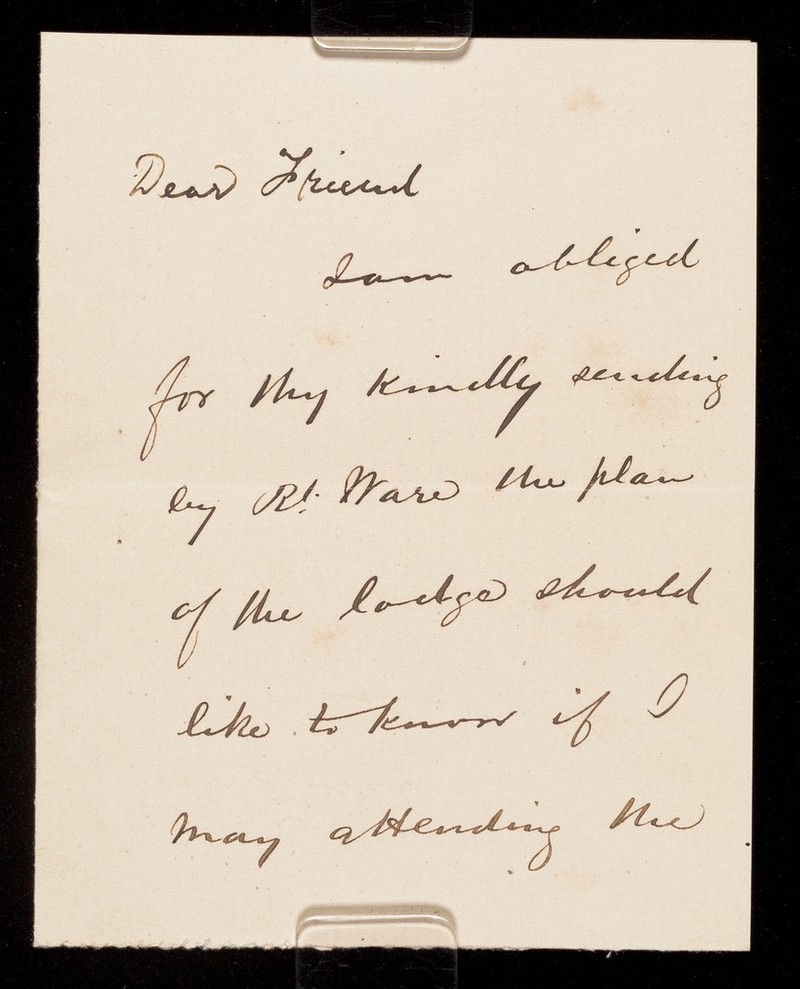 Dear Friend
I am obliged
for thy kindly sending
by Rt. Ware the plan
of the lodge should
like to know if I
may attending the